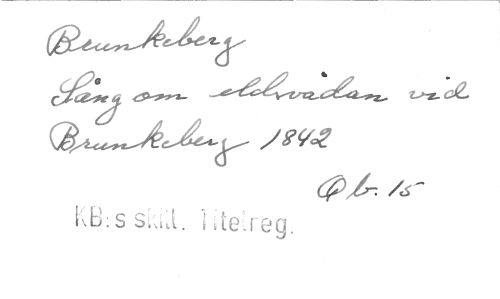 Brunkeberg
Sång om eldsvådan vid
Brunkeberg 1842
Qb. 15
KB:s skill. Titelreg.